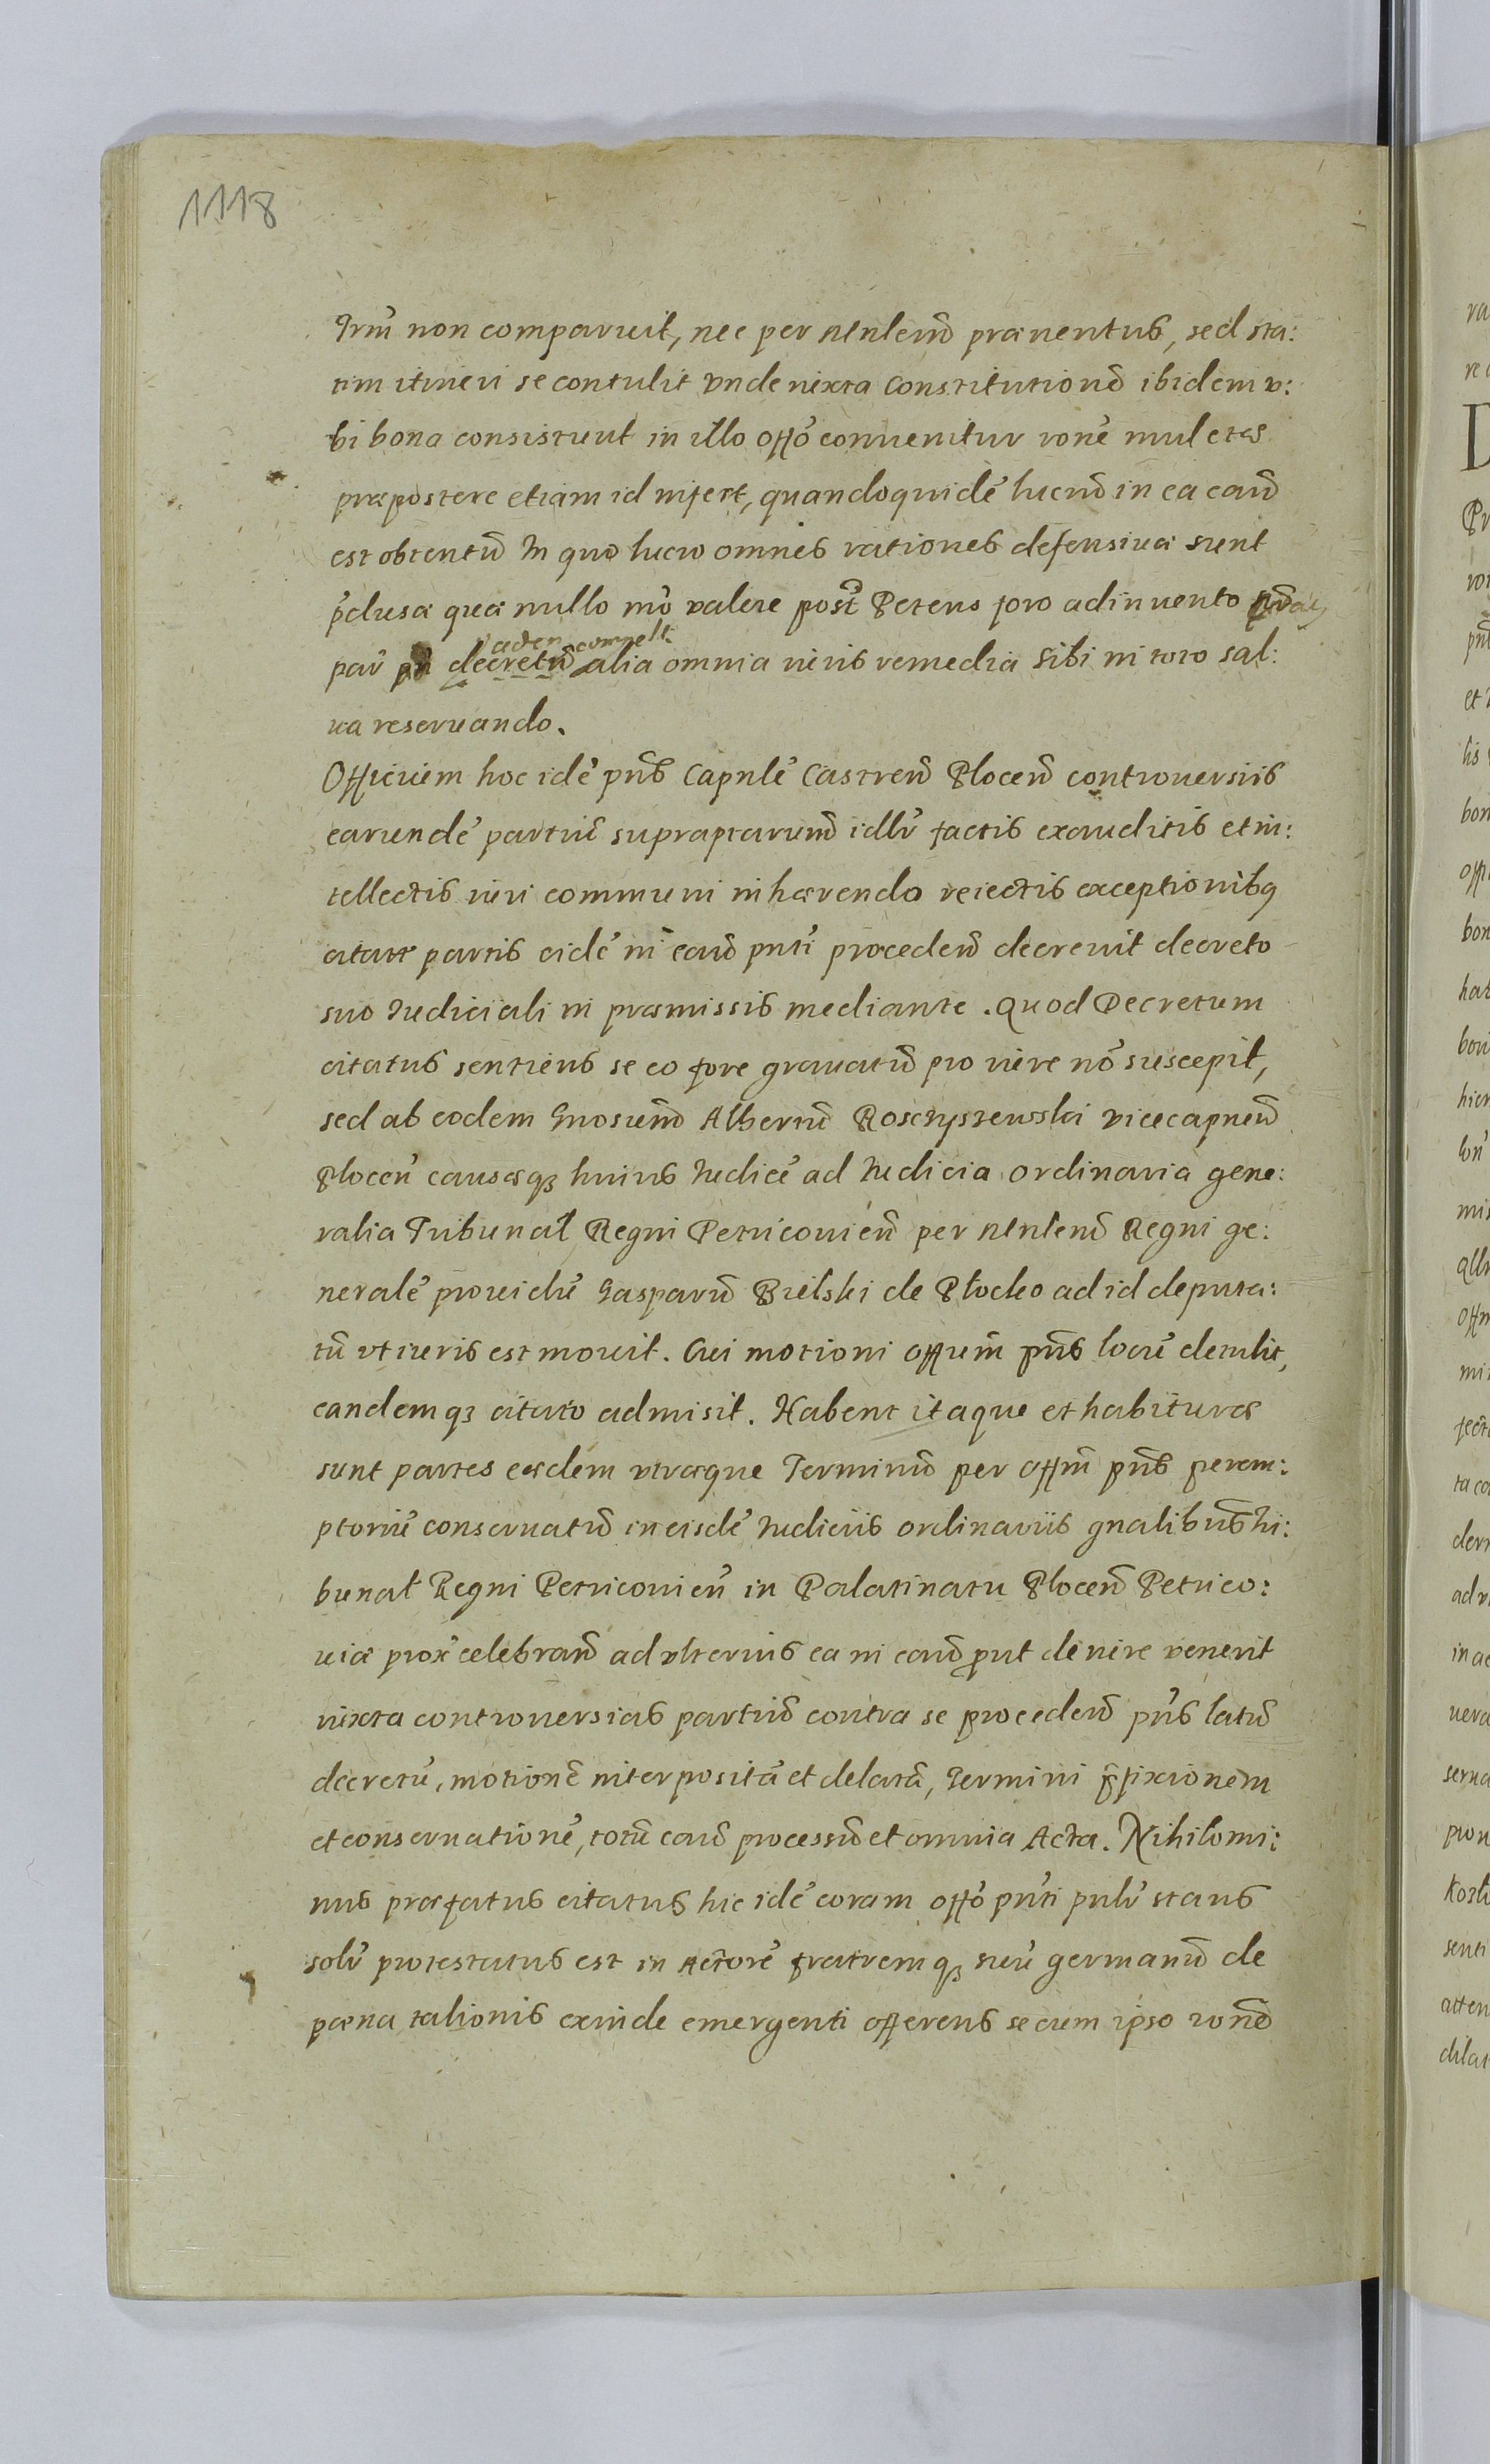 1118
Trm̃ non comparuit, nec per Mñleñ præuentus, sed sta:
tim itineri se contulit vnde iuxta Constitutionẽ ibidem v:
bi bona consistunt in illo offõ conuenitur rõnẽ mulctæ
præpostere etiam id infert, quandoquidẽ lucrũ in ea cau͠
est obtentũ In quo lucro omnes rationes defensiuæ sunt
p̃clusæ quæ nullo mõ valere post̃ Petens foro adinuento
par decretũ alia omnia iuris remedia sibi in toto sal:
ua reseruando.
Officium hoc idẽ pñs Capñle Castreñ Ploceñ controuersiis
earundẽ partiũ supraptarum idlr̃ factis exauditis et in:
tellectis iuri communi inhærendo reiectis exceptionibq
citatæ partis eidẽ in cau͠ pñti procedeñ decreuit decreto
suo Iudiciali in præmissis mediante. Quod Decretum
citatus sentiens se eo fore grauatũ pro iure nõ suscepit,
sed ab eodem Gñosum Albertũ Rosciszewski vicecapneũ
Ploceñ causæq3 huius Iudicẽ ad Iudicia ordinaria gene:
ralia Tribunal Regni Petricouieñ per Mñleñ Regni ge:
neralẽ prouidũ Gasparũ Bielski de Płocko ad id deputa:
tũ vt iuris est mouit. Cui motioni offium̃ pñs locũ detulit,
eandemq3 citato admisit. Habent itaque et habituræ
sunt partes eædem vtræque Terminũ per offm̃ pñs perem:
ptoriũ conseruatũ in eisdẽ Iudiciis ordinariis gñalibus Tri:
bunal Regni Petricouieñ in Palatinatu Ploceñ Petrico:
uiæ prox̃ celebrañ ad vlterius ea in cau͠ put de iure venerit
iuxta controuersias partiũ contra se procedeñ pñs latũ
decretũ, motionẽ interpositã et delatã, Termini p̃fixionem
et conseruationẽ, totũ cau͠ processũ et omnia Acta. Nihilomi:
nus præfatus citatus hic idẽ coram offõ pñti pñlr̃ stans
solr̃ protestatus est in Actorẽ fratremq3 suũ germanũ de
pæna talionis exinde emergenti offerens se cum ipso rõnẽ